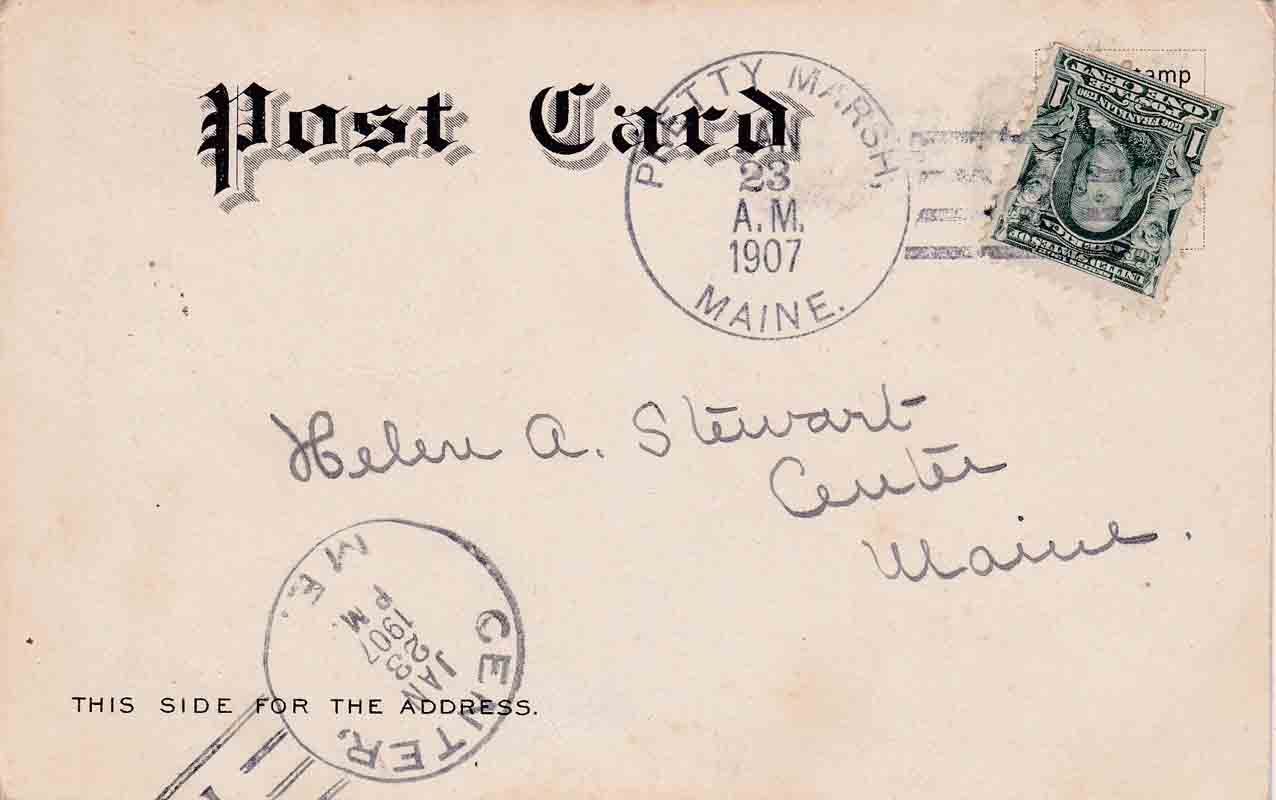 Post Card
PRETTY MARSH,
JAN
23
A.M.
1907
MAINE.
stamp
ONE CENT
1 1
Helen A. Stewart
Center
Maine.
CENTER,
JAN
23
1907
P M.
ME.
THIS SIDE FOR THE ADDRESS.